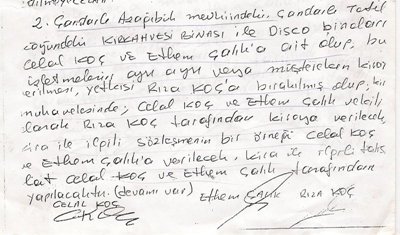 2. Çandarlı Azapibik mevkiindeki, Çandarlı Tatil
Köyündeki KIR KAHVESİ BİNASI ile Disco binaları
Celal KOÇ VE Ethem Çalık'a ait olup, bu
işletmelerin ayrı ayrı veya müştereken kiraya
verilmesi, yetkisi Rıza KOÇ'a bırakılmış olup, kira
mukavelesinde; Celal KOÇ ve Ethem Çalık vekili
olarak Rıza KOÇ tarafından kiraya verilecek,
kira ile ilgili sözleşmenin bir örneği Celal KOÇ
ve Ethem Çalık'a verilecek, kira ile ilgili tah
silat Celal KOÇ ve Ethem Çalık tarafından
yapılacaktır. (devamı var) Ethem ÇALIK RIZA KOÇ
CELAL KOÇ